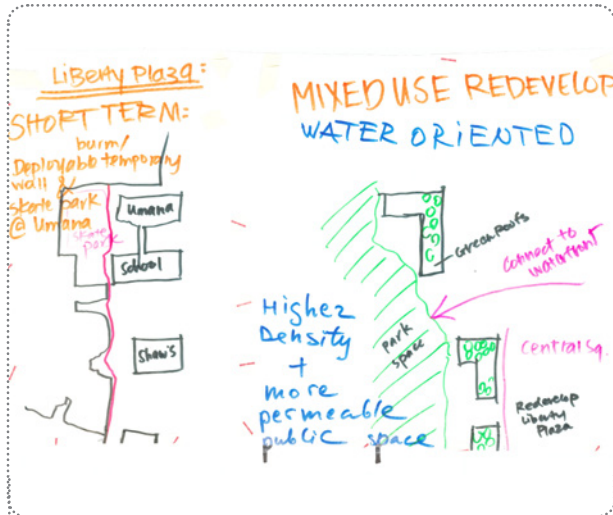 LiBerty Plaza:
SHORT TERM:
burm/
Deployable temporary
wall &
skate park
@ Umana
skate
park
Umana
School
Shaw's
MIXED USE REDEVELOP
WATER ORIENTED
Green Roofs
connect to
waterfront
Higher
Density
+
more
permeable
public space
park
space
Central Sq.
Redevelop
Liberty
Plaza